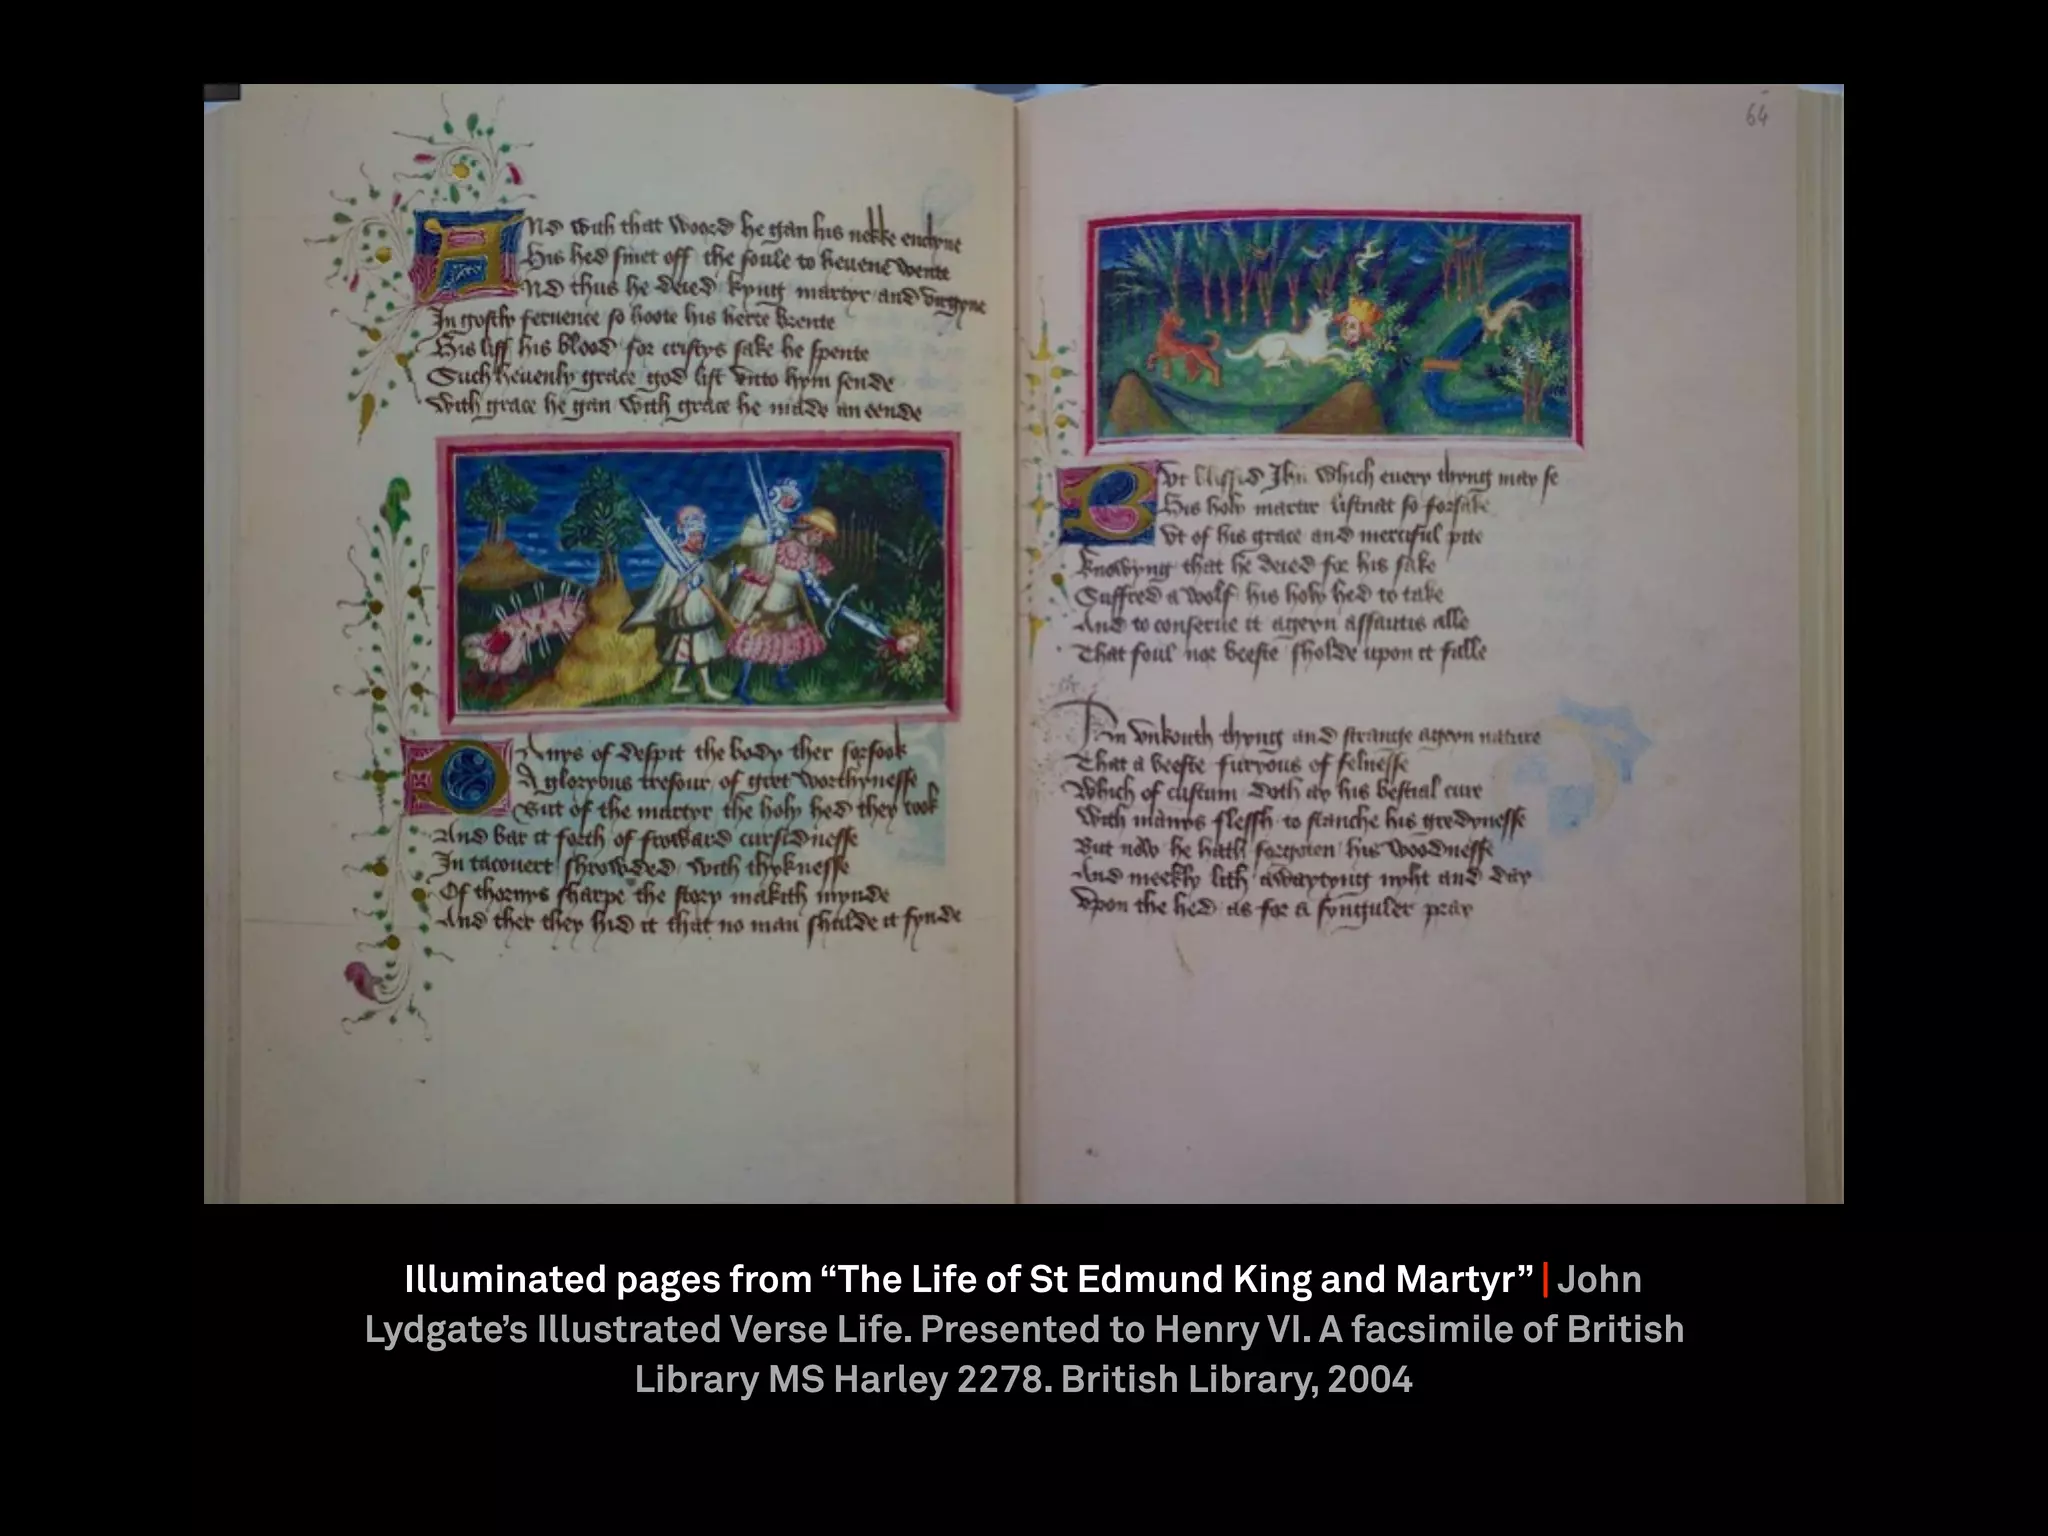 And with that woord he gan his nekke enclyne
His hed smet off the soule to hevene wente
And thus he deied kyng martyr and virgyne
In gostly fervence so hoote his herte brente
His liff his blood for cristys sake he spente
Such hevenly grace god list unto hym sende
With grace he gan with grace he made an eende
Danys of despit the body ther forsook
A gloryous tresour of gret worthynesse
But of the martyr the holy hed they took
And bar it forth of froward cursidnesse
In tacouert shrowded with thyknesse
Of thornys sharpe the story makith mynde
And ther they hid it that no man shulde it fynde
64
But blissid Ihu which every thyng may se
His holy martir list nat so forsake
But of his grace and merciful pite
Knowyng that he deied for his sake
Suffred a wolf his holy hed to take
And to conserve it ageyn assautis alle
That foul nor beeste sholde upon it falle
An unkouth thyng and strange ageyn nature
That a beeste furyous of felnesse
Which of custum doth ay his bestial cure
With mannys flessh to stanche his gredynesse
But now he hath forgoten his woodnesse
And meekly lith awaytyng nyht and day
Upon the hed as for a synguler pray
Illuminated pages from “The Life of St Edmund King and Martyr” | John
Lydgate’s Illustrated Verse Life. Presented to Henry VI. A facsimile of British
Library MS Harley 2278. British Library, 2004